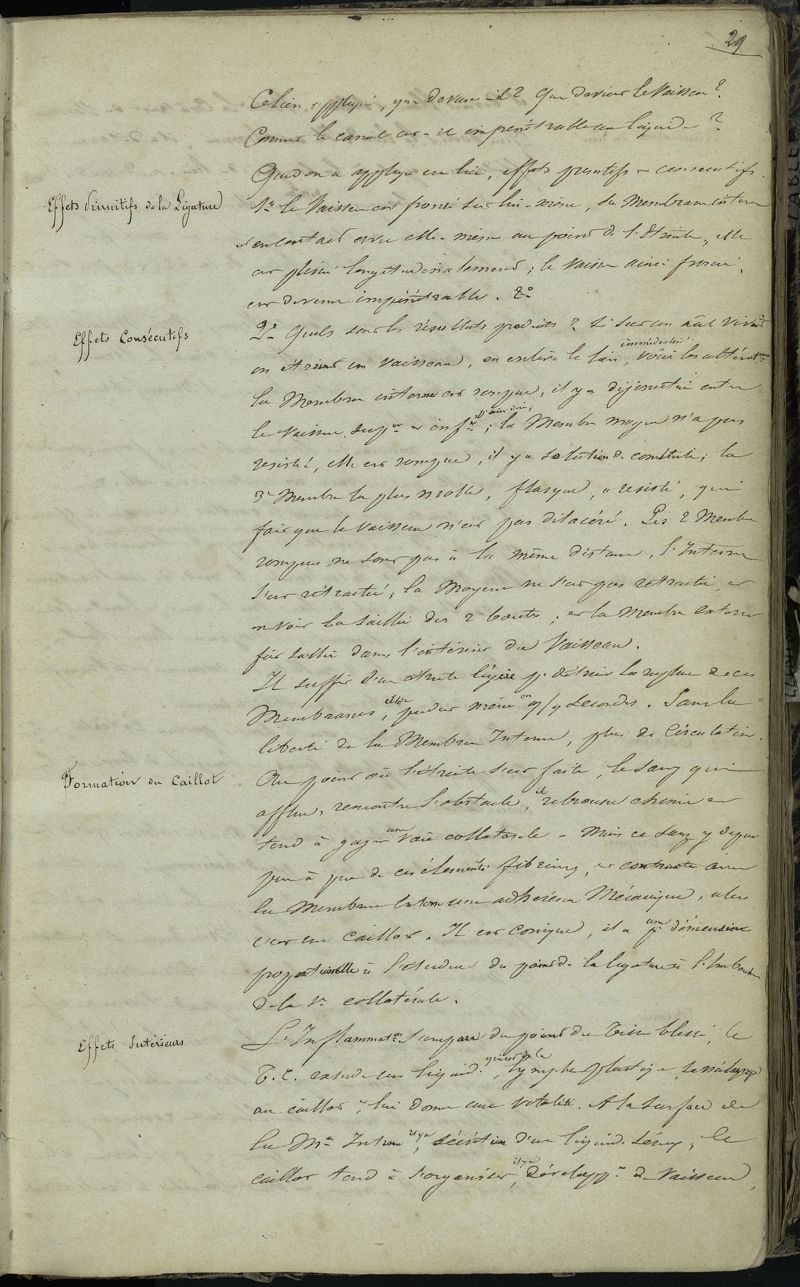 29
Ce lien appliqué, que devient-il? Que devient le Vaisseau?
Comment le canal est-il impénétrable au liquide?
Quand on a appliqué un lien, effets primitifs & consécutifs.
Effets Primitifs de la Ligature
1º le Vaisseau est froncé sur lui-même, sa Membrane interne
est en contact avec elle-même au point de l'Etreinte, elle
est plissée longitudinalement; le vaisseau ainsi froncé,
est devenu impénétrable. 2º
Effets Consécutifs
2º Quels sont les résultats produits? Si sur un animal vivant
on étreint un vaisseau, on enlève le lien immédiatemt, voici les altérations
la Membrane interne est rompue, il y a disjonction entre
le Vaisseau supr & infr; la Membrane moyenne n'a pas
resisté, elle est rompue, il y a solution de continuité; la
3e Membrane la plus molle, flasque, a resisté, qui
fait que le Vaisseau n'est pas dilacéré. Les 2 Membranes
rompues ne sont pas à la même distance, l'Interne
s'est rétractée, la Moyenne ne s'est pas rétractée, et
on voit la saillie des 2 bouts; et la Membrane externe
fait saillie dans l'intérieur du Vaisseau.
Il suffit d'une étreinte légère pr déterminer la rupture de ces
Membranes, pendant même qq secondes. Sans la
liberté de la Membrane Interne, plus de Circulation.
Formation du Caillot
Au point où l'étreinte s'est faite, le sang qui
afflue, rencontre l'obstacle, il rebrousse chemin et
tend à gagner une voie collatérale - Mais ce sang y dépose
peu à peu de ces éléments fibrineux, et contracte avec
la Membrane Interne une adhérence Mécanique, alors
c'est un caillot. Il est conique, il a une dimension
proportionnelle à l'étendue du point de la ligature à l'embouchure
de la 1e collatérale.
Effets Intérieurs
L'Inflammaton s'empare du point du tissu blessé, le
T. C. exsude un liquide, lymphe plastique se mélange
au caillot, lui donne une vitalité. A la surface de
la Me Interne il y a sécrétion d'un liquide séreux, le
caillot tend à s'organiser, il y a développt de Vaisseaux,